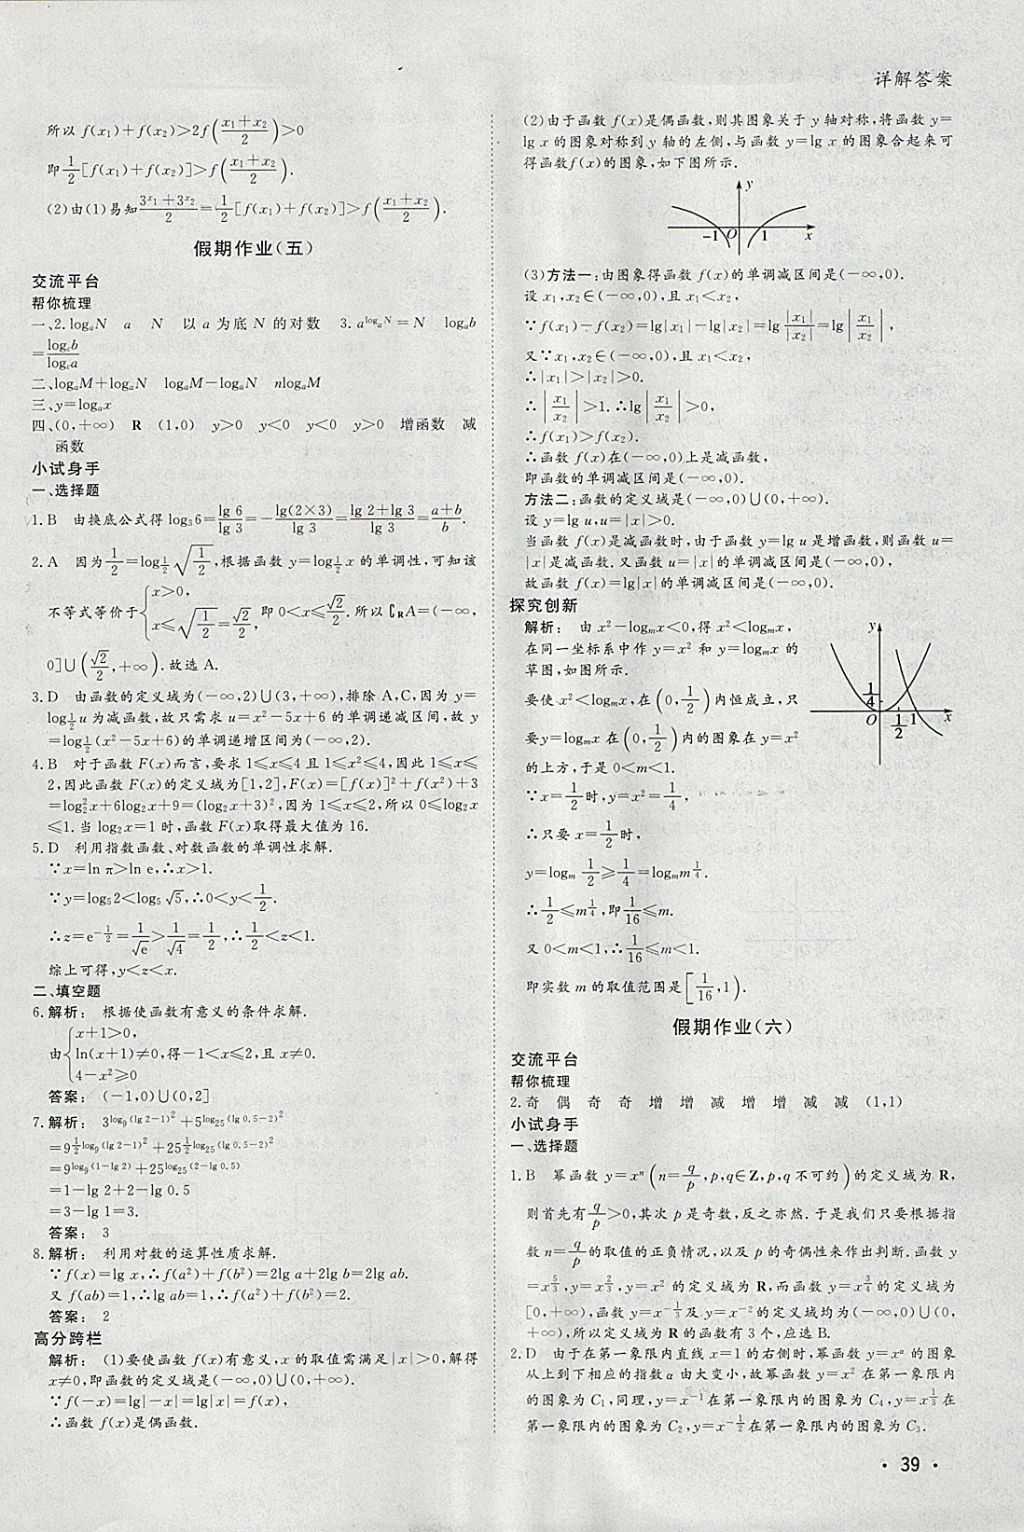 详解答案
所以 f(x₁)+f(x₂)>2f((x₁+x₂)/2)>0
即1/2[f(x₁)+f(x₂)]>f((x₁+x₂)/2).
(2)由(1)易知(3^x₁+3^x₂)/2=1/2[f(x₁)+f(x₂)]>f((x₁+x₂)/2).
假期作业(五)
交流平台
帮你梳理
一、2.logₐN a N 以 a 为底 N 的对数 3.a^(logₐN)=N logₐb
=log_c b/log_c a
二、logₐM+logₐN logₐM-logₐN nlogₐM
三、y=logₐx
四、(0,+∞) R (1,0) y>0 y<0 y<0 y>0 增函数 减
函数
小试身手
一、选择题
1.B 由换底公式得 log₃6=lg 6/lg 3=-lg(2×3)/lg 3=(lg 2+lg 3)/lg 3=(a+b)/b.
2.A 因为1/2=log_(1/2)√(1/2),根据函数 y=log_(1/2) x 的单调性,可知该
不等式等价于{x>0, x≤√(1/2)=√2/2, 即 0<x≤√2/2.所以∁_R A=(-∞,
0]∪(√2/2,+∞).故选 A.
3.D 由函数的定义域为(-∞,2)∪(3,+∞),排除 A,C,因为 y=
log_(1/2) u 为减函数,故只需求 u=x²-5x+6 的单调递减区间,故 y
=log_(1/2)(x²-5x+6)的单调递增区间为(-∞,2).
4.B 对于函数 F(x)而言,要求 1≤x≤4 且 1≤x²≤4,因此 1≤x≤
2,因此函数 F(x)的定义域为[1,2],F(x)=[f(x)]²+f(x²)+3
=log₂²x+6log₂x+9=(log₂x+3)²,因为 1≤x≤2,所以 0≤log₂x
≤1.当 log₂x=1 时,函数 F(x)取得最大值为 16.
5.D 利用指数函数、对数函数的单调性求解.
∵x=ln π>ln e,∴x>1.
∵y=log₅2<log₅√5,∴0<y<1/2.
∴z=e^(-1/2)=1/√e>1/√4=1/2,∴1/2<z<1.
综上可得,y<z<x.
二、填空题
6.解析: 根据使函数有意义的条件求解.
由{x+1>0, ln(x+1)≠0, 4-x²≥0 得-1<x≤2,且 x≠0.
答案: (-1,0)∪(0,2]
7.解析: 3^(log₉(lg 2-1)²)+5^(log₂₅(lg 0.5-2)²)
=9^((1/2)log₉(lg 2-1)²)+25^((1/2)log₂₅(lg 0.5-2)²)
=9^(log₉(1-lg 2))+25^(log₂₅(2-lg 0.5))
=1-lg 2+2-lg 0.5
=3-lg 1=3.
答案: 3
8.解析: 利用对数的运算性质求解.
∵f(x)=lg x,∴f(a²)+f(b²)=2lg a+2lg b=2lg ab.
又 f(ab)=1,∴lg ab=1,∴f(a²)+f(b²)=2.
答案: 2
高分跨栏
解析: (1)要使函数 f(x)有意义,x 的取值需满足|x|>0,解得
x≠0,即函数的定义域是(-∞,0)∪(0,+∞).
∵f(-x)=lg|-x|=lg|x|=f(x),
∴函数 f(x)是偶函数.
(2)由于函数 f(x)是偶函数,则其图象关于 y 轴对称,将函数 y=
lg x 的图象对称到 y 轴的左侧,与函数 y=lg x 的图象合起来可
得函数f(x)的图象,如下图所示.
y
-1 O 1 x
(3)方法一:由图象得函数 f(x)的单调减区间是(-∞,0).
设 x₁,x₂∈(-∞,0),且 x₁<x₂,
∵f(x₁)-f(x₂)=lg|x₁|-lg|x₂|=lg|x₁|/|x₂|=lg|x₁/x₂|,
又∵x₁,x₂∈(-∞,0),且 x₁<x₂,
∴|x₁|>|x₂|>0.
∴|x₁/x₂|>1.∴lg|x₁/x₂|>0,
∴f(x₁)>f(x₂).
∴函数 f(x)在(-∞,0)上是减函数,
即函数的单调减区间是(-∞,0).
方法二:函数的定义域是(-∞,0)∪(0,+∞).
设 y=lg u,u=|x|>0.
当函数 f(x)是减函数时,由于函数 y=lg u 是增函数,则函数 u=
|x|是减函数.又函数 u=|x|的单调减区间是(-∞,0),
故函数 f(x)=lg|x|的单调减区间是(-∞,0).
探究创新
解析: 由 x²-logₘx<0,得 x²<logₘx,
在同一坐标系中作 y=x² 和 y=logₘx 的
草图,如图所示.
要使 x²<logₘx,在(0,1/2)内恒成立,只
要y=logₘx 在(0,1/2)内的图象在 y=x²
的上方,于是 0<m<1.
y
1/4
O 1/2 1 x
∵x=1/2时,y=x²=1/4,
∴只要 x=1/2时,
y=logₘ 1/2≥1/4=logₘm^(1/4).
∴1/2≤m^(1/4),即1/16≤m.
又 0<m<1,∴1/16≤m<1.
即实数 m 的取值范围是[1/16,1).
假期作业(六)
交流平台
帮你梳理
2.奇 偶 奇 奇 增 增 减 增 增 减 减 (1,1)
小试身手
一、选择题
1.B 幂函数 y=xⁿ(n=q/p,p,q∈Z,p,q 不可约)的定义域为 R,
则首先有q/p>0,其次 p 是奇数,反之亦然.于是我们只要根据指
数 n=q/p的取值的正负情况,以及 p 的奇偶性来作出判断.函数 y
=x^(5/3),y=x^(2/3),y=x² 的定义域为 R,而函数 y=x^(3/4)的定义域为
[0,+∞),函数 y=x^(-1/3)及 y=x⁻²的定义域均为(-∞,0)∪(0,
+∞),所以定义域为 R 的函数有 3 个,应选 B.
2.D 由于在第一象限内直线 x=1 的右侧时,幂函数 y=x^α 的图象
从上到下相应的指数 α 由大变小,故幂函数 y=x² 在第一象限内
的图象为 C₁,同理,y=x⁻¹在第一象限内的图象为 C₄,y=x^(1/3)在
第一象限内的图象为 C₂,y=x^(-1/2)在第一象限内的图象为 C₃.
· 39 ·